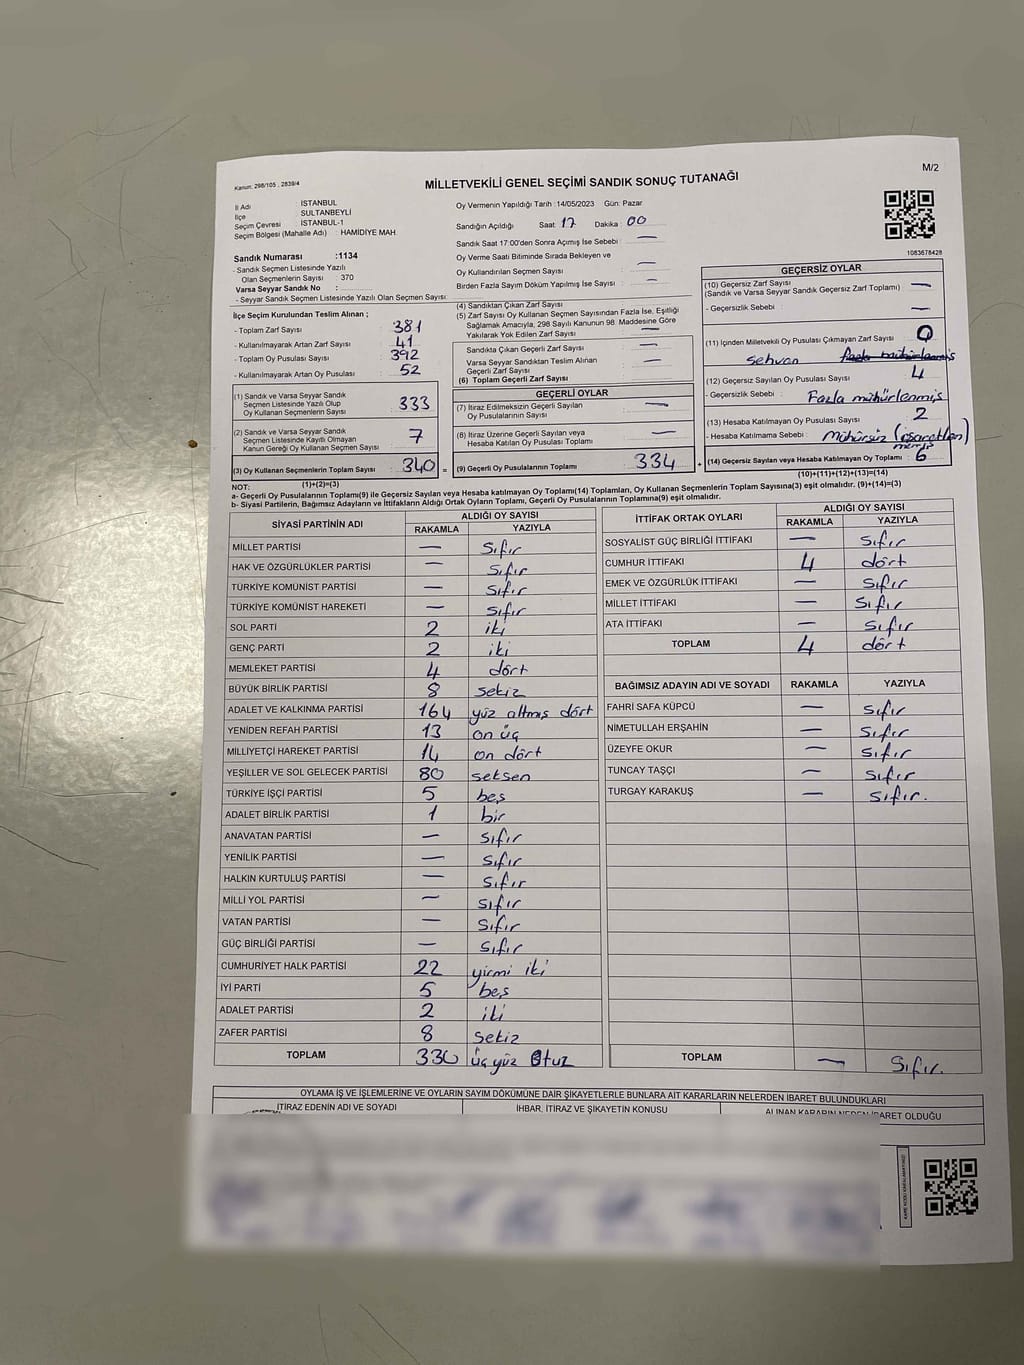 Kanun: 298/105 , 2839/4
M/2
MİLLETVEKİLİ GENEL SEÇİMİ SANDIK SONUÇ TUTANAĞI
İl Adı : İSTANBUL
İlçe : SULTANBEYLİ
Seçim Çevresi : İSTANBUL-1
Seçim Bölgesi (Mahalle Adı) : HAMİDİYE MAH.
Sandık Numarası :1134
- Sandık Seçmen Listesinde Yazılı
Olan Seçmenlerin Sayısı : 370
Varsa Seyyar Sandık No :
- Seyyar Sandık Seçmen Listesinde Yazılı Olan Seçmen Sayısı
İlçe Seçim Kurulundan Teslim Alınan ;
- Toplam Zarf Sayısı : 381
- Kullanılmayarak Artan Zarf Sayısı : 41
- Toplam Oy Pusulası Sayısı : 392
- Kullanılmayarak Artan Oy Pusulası : 52
(1) Sandık ve Varsa Seyyar Sandık
Seçmen Listesinde Yazılı Olup
Oy Kullanan Seçmenlerin Sayısı : 333
(2) Sandık ve Varsa Seyyar Sandık
Seçmen Listesinde Kayıtlı Olmayan
Kanun Gereği Oy Kullanan Seçmen Sayısı : 7
(3) Oy Kullanan Seçmenlerin Toplam Sayısı : 340 =
(1)+(2)=(3)
Oy Vermenin Yapıldığı Tarih :14/05/2023 Gün: Pazar
Sandığın Açıldığı Saat 17 Dakika : 00
Sandık Saat 17:00'den Sonra Açımış İse Sebebi : —
Oy Verme Saati Bitiminde Sırada Bekleyen ve
Oy Kullandırılan Seçmen Sayısı : —
Birden Fazla Sayım Döküm Yapılmış İse Sayısı : —
(4) Sandıktan Çıkan Zarf Sayısı
(5) Zarf Sayısı Oy Kullanan Seçmen Sayısından Fazla İse, Eşitliği
Sağlamak Amacıyla, 298 Sayılı Kanunun 98. Maddesine Göre
Yakılarak Yok Edilen Zarf Sayısı : —
Sandıkta Çıkan Geçerli Zarf Sayısı : —
Varsa Seyyar Sandıktan Teslim Alınan
Geçerli Zarf Sayısı : —
(6) Toplam Geçerli Zarf Sayısı
GEÇERLİ OYLAR
(7) İtiraz Edilmeksizin Geçerli Sayılan
Oy Pusulalarının Sayısı : —
(8) İtiraz Üzerine Geçerli Sayılan veya
Hesaba Katılan Oy Pusulası Toplamı : —
(9) Geçerli Oy Pusulalarının Toplamı : 334 +
1083678428
GEÇERSİZ OYLAR
(10) Geçersiz Zarf Sayısı
(Sandık ve Varsa Seyyar Sandık Geçersiz Zarf Toplamı) : —
- Geçersizlik Sebebi : —
(11) İçinden Milletvekili Oy Pusulası Çıkmayan Zarf Sayısı : 0
Sehven Fazla mühürlenmiş
(12) Geçersiz Sayılan Oy Pusulası Sayısı : 4
- Geçersizlik Sebebi : Fazla mühürlenmiş
(13) Hesaba Katılmayan Oy Pusulası Sayısı : 2
- Hesaba Katılmama Sebebi : Mühürsüz (işaretlen
memiş)
(14) Geçersiz Sayılan veya Hesaba Katılmayan Oy Toplamı : 6
(10)+(11)+(12)+(13)=(14)
NOT:
a- Geçerli Oy Pusulalarının Toplamı(9) ile Geçersiz Sayılan veya Hesaba katılmayan Oy Toplamı(14) Toplamları, Oy Kullanan Seçmenlerin Toplam Sayısına(3) eşit olmalıdır. (9)+(14)=(3)
b- Siyasi Partilerin, Bağımsız Adayların ve İttifakların Aldığı Ortak Oyların Toplamı, Geçerli Oy Pusulalarının Toplamına(9) eşit olmalıdır.
SİYASİ PARTİNİN ADI ALDIĞI OY SAYISI
RAKAMLA YAZIYLA
MİLLET PARTİSİ — Sıfır
HAK VE ÖZGÜRLÜKLER PARTİSİ — Sıfır
TÜRKİYE KOMÜNİST PARTİSİ — Sıfır
TÜRKİYE KOMÜNİST HAREKETİ — Sıfır
SOL PARTİ 2 iki
GENÇ PARTİ 2 iki
MEMLEKET PARTİSİ 4 dört
BÜYÜK BİRLİK PARTİSİ 8 sekiz
ADALET VE KALKINMA PARTİSİ 164 yüz altmış dört
YENİDEN REFAH PARTİSİ 13 on üç
MİLLİYETÇİ HAREKET PARTİSİ 14 on dört
YEŞİLLER VE SOL GELECEK PARTİSİ 80 seksen
TÜRKİYE İŞÇİ PARTİSİ 5 beş
ADALET BİRLİK PARTİSİ 1 bir
ANAVATAN PARTİSİ — Sıfır
YENİLİK PARTİSİ — Sıfır
HALKIN KURTULUŞ PARTİSİ — Sıfır
MİLLİ YOL PARTİSİ — Sıfır
VATAN PARTİSİ — Sıfır
GÜÇ BİRLİĞİ PARTİSİ — Sıfır
CUMHURİYET HALK PARTİSİ 22 yirmi iki
İYİ PARTİ 5 beş
ADALET PARTİSİ 2 iki
ZAFER PARTİSİ 8 sekiz
TOPLAM 330 üç yüz Otuz
İTTİFAK ORTAK OYLARI ALDIĞI OY SAYISI
RAKAMLA YAZIYLA
SOSYALİST GÜÇ BİRLİĞİ İTTİFAKI — Sıfır
CUMHUR İTTİFAKI 4 dört
EMEK VE ÖZGÜRLÜK İTTİFAKI — Sıfır
MİLLET İTTİFAKI — Sıfır
ATA İTTİFAKI — Sıfır
TOPLAM 4 dört
BAĞIMSIZ ADAYIN ADI VE SOYADI RAKAMLA YAZIYLA
FAHRİ SAFA KÜPCÜ — Sıfır
NİMETULLAH ERŞAHİN — Sıfır
ÜZEYFE OKUR — Sıfır
TUNCAY TAŞÇI — Sıfır
TURGAY KARAKUŞ — Sıfır.
TOPLAM — Sıfır.
OYLAMA İŞ VE İŞLEMLERİNE VE OYLARIN SAYIM DÖKÜMÜNE DAİR ŞİKAYETLERLE BUNLARA AİT KARARLARIN NELERDEN İBARET BULUNDUKLARI
İTİRAZ EDENİN ADI VE SOYADI İHBAR, İTİRAZ VE ŞİKAYETİN KONUSU ALINAN KARARIN NEDEN İBARET OLDUĞU